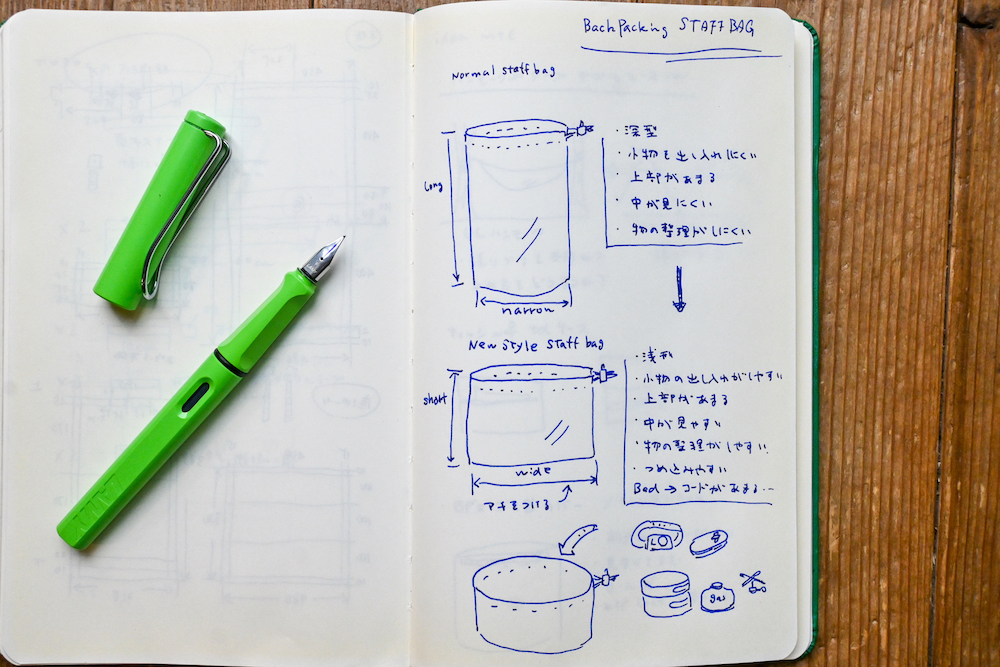 BachPacking STAFF BAG
Normal staff bag
long
narrow
・深型
・小物を出し入れにくい
・上部があまる
・中が見にくい
・物の整理がしにくい
New Style staff bag
short
wide
マチをつける
・浅型
・小物の出し入れがしやすい
・上部があまる
・中が見やすい
・物の整理がしやすい
・つめ込みやすい
Bad → コードがあまる…
gas